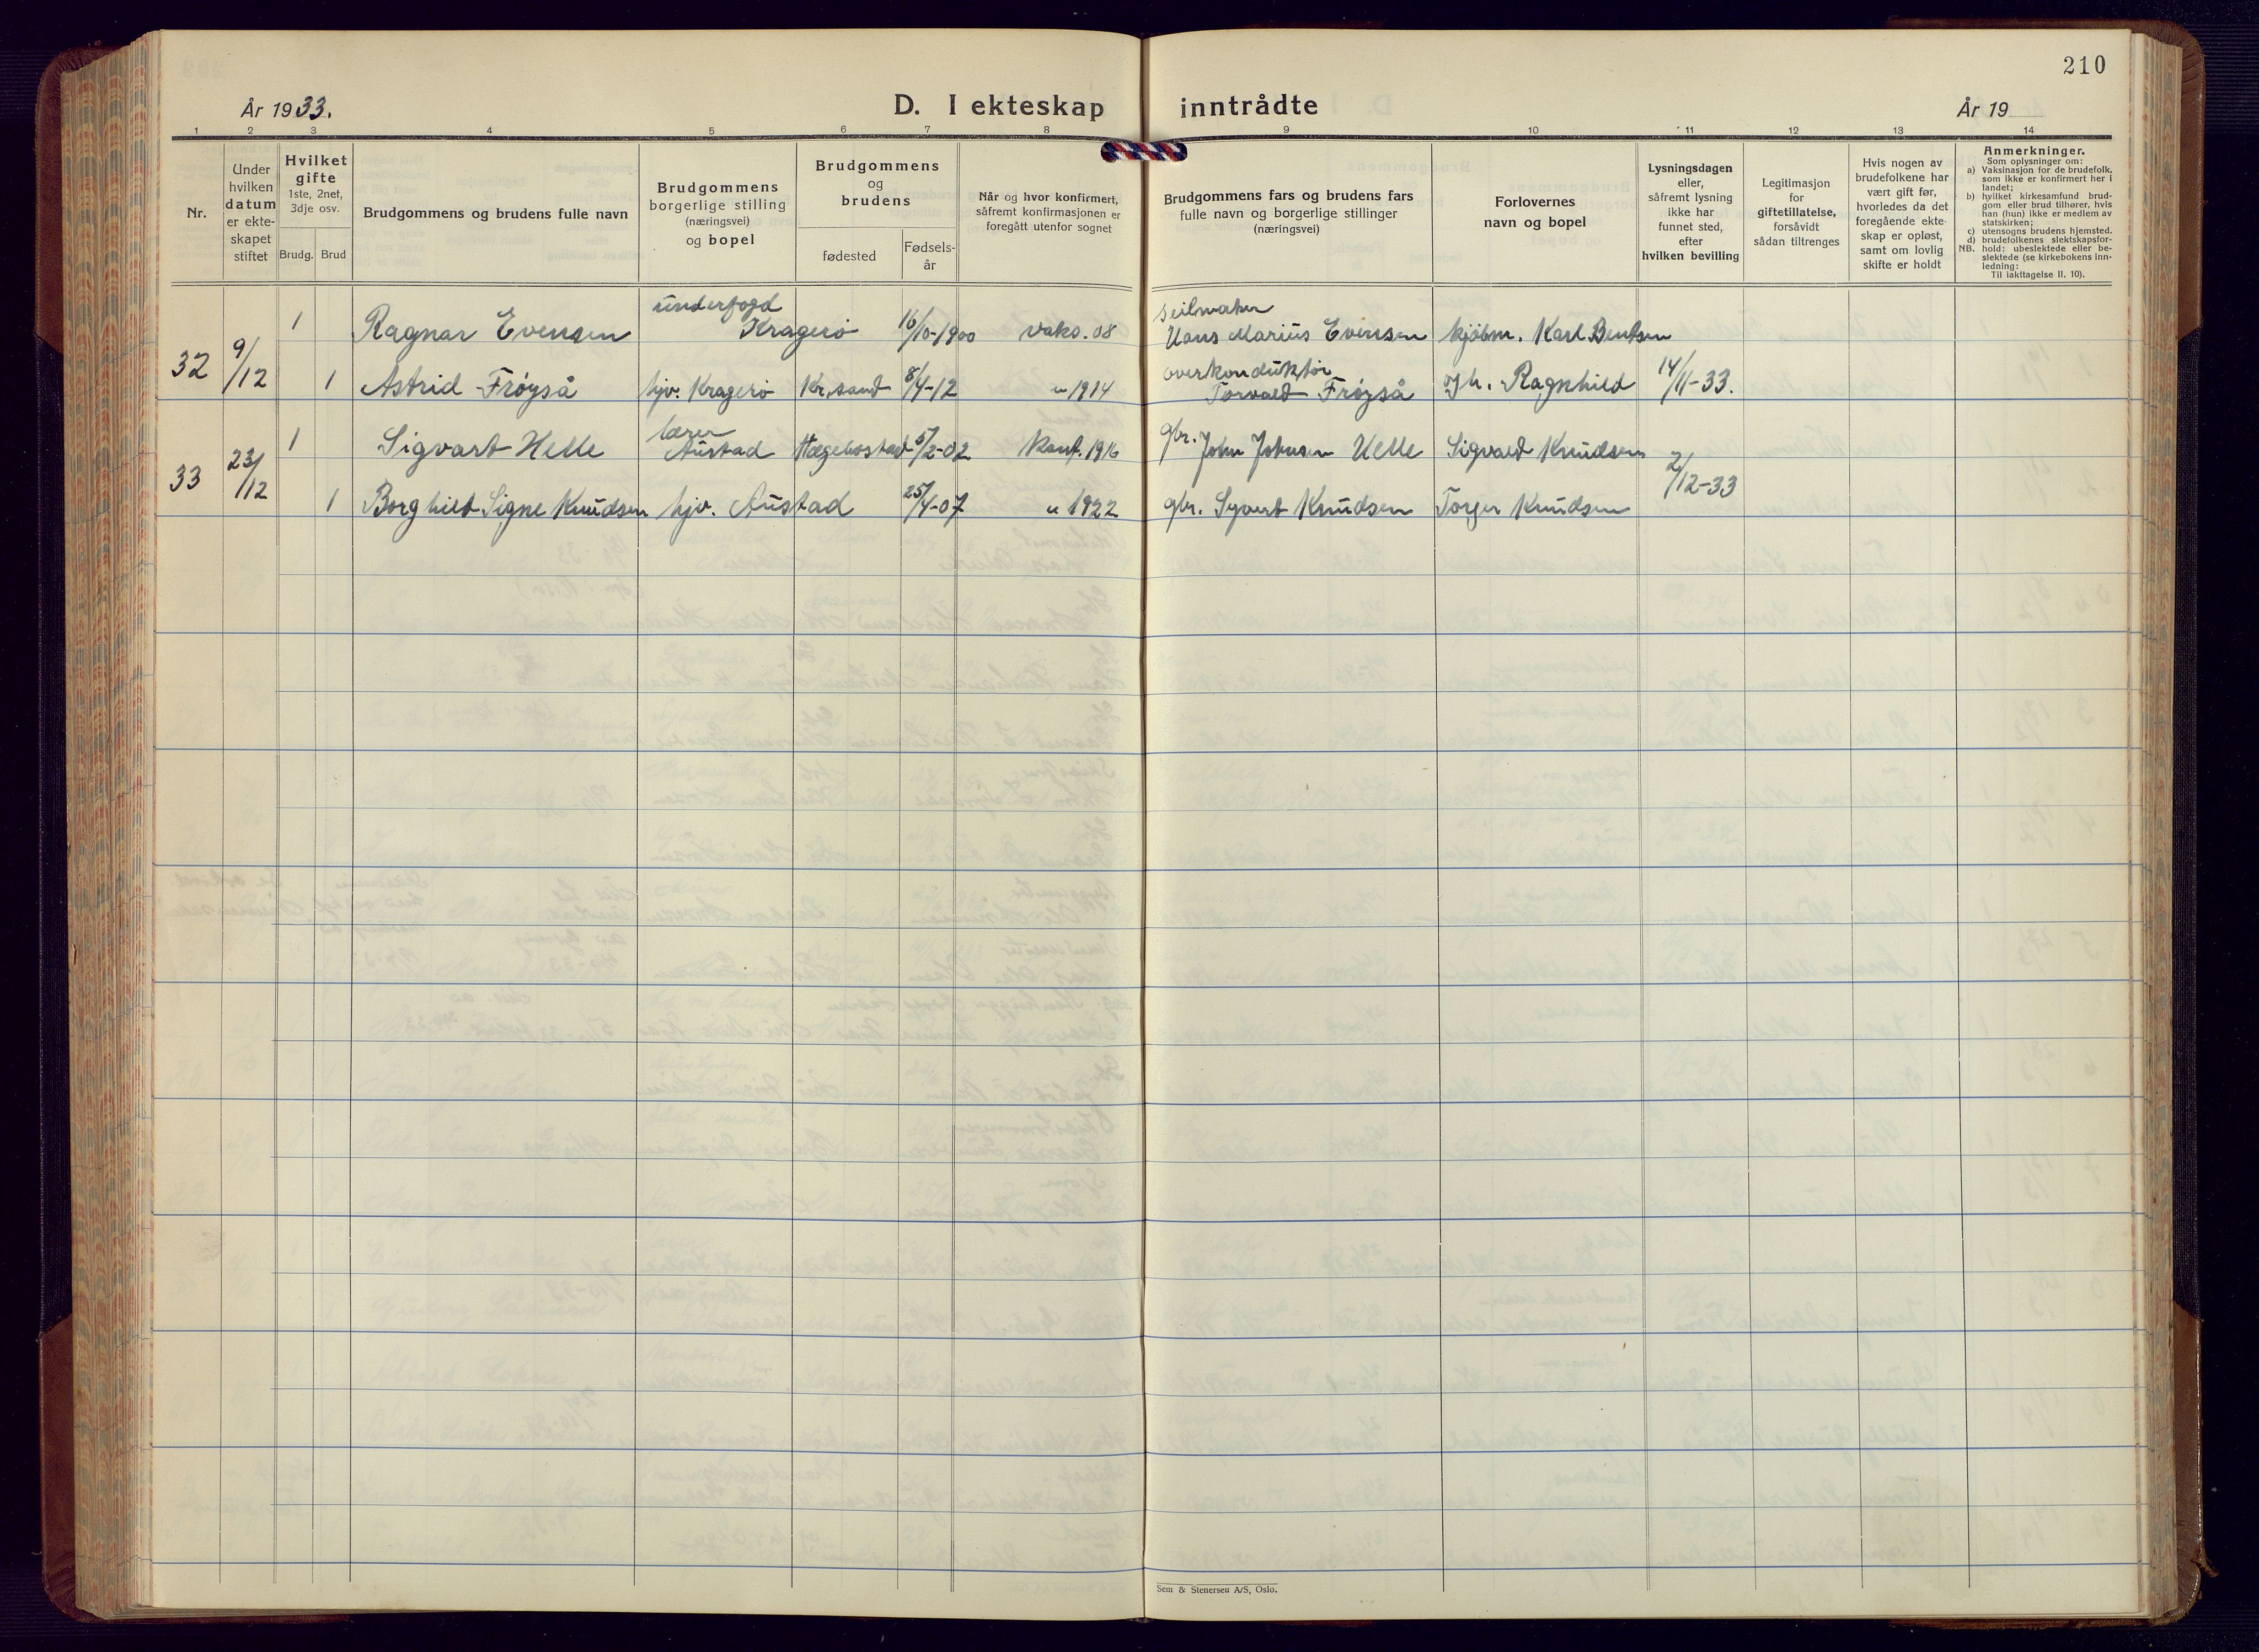 210
År 1933.
D. I ekteskap inntrådte
År 19
1 2 3 4 5 6 7 8 9 10 11 12 13 14
Nr.
Under
hvilken
datum
er ekte-
skapet
stiftet
Hvilket
gifte
1ste, 2net,
3dje osv.
Brudg. Brud
Brudgommens og brudens fulle navn
Brudgommens
borgerlige stilling
(næringsvei)
og bopel
Brudgommens
og
brudens
fødested
Fødsels-
år
Når og hvor konfirmert,
såfremt konfirmasjonen er
foregått utenfor sognet
Brudgommens fars og brudens fars
fulle navn og borgerlige stillinger
(næringsvei)
Forlovernes
navn og bopel
Lysningsdagen
eller,
såfremt lysning
ikke har
funnet sted,
efter
hvilken bevilling
Legitimasjon
for
giftetillatelse,
forsåvidt
sådan tiltrenges
Hvis nogen av
brudefolkene har
vært gift før,
hvorledes da det
foregående ekte-
skap er opløst,
samt om lovlig
skifte er holdt
Anmerkninger.
Som oplysninger om:
a) Vaksinasjon for de brudefolk,
som ikke er konfirmert her i
landet;
b) hvilket kirkesamfund brud-
gom eller brud tilhører, hvis
han (hun) ikke er medlem av
statskirken;
c) utensogns brudens hjemsted.
d) brudefolkenes slektskapsfor-
NB. hold: ubeslektede eller be-
slektede (se kirkebokens inn-
ledning:
Til iakttagelse II. 10).
underfogd seilmaker
1 Ragnar Evensen Kragerø 16/10-1900 vaks. 08 Hans Marius Evensen kjøbm. Karl Bentsen
32 9/12 overkonduktør 14/11-33.
1 Astrid Frøyså hjv. Kragerø Kr.sand 8/4-12 " 1914 Torvald Frøyså Ragnhild
lærer
1 Sigvart Helle Austad Hægebostad 5/2-02 Konf. 1916 gbr. John Johnsen Helle Sigvald Knudsen
33 23/12 2/12-33
1 Borghild Signe Knudsen hjv. Austad 25/4-07 " 1922 gbr. Syvert Knudsen Torger Knudsen
Sem & Stenersen A/S, Oslo.